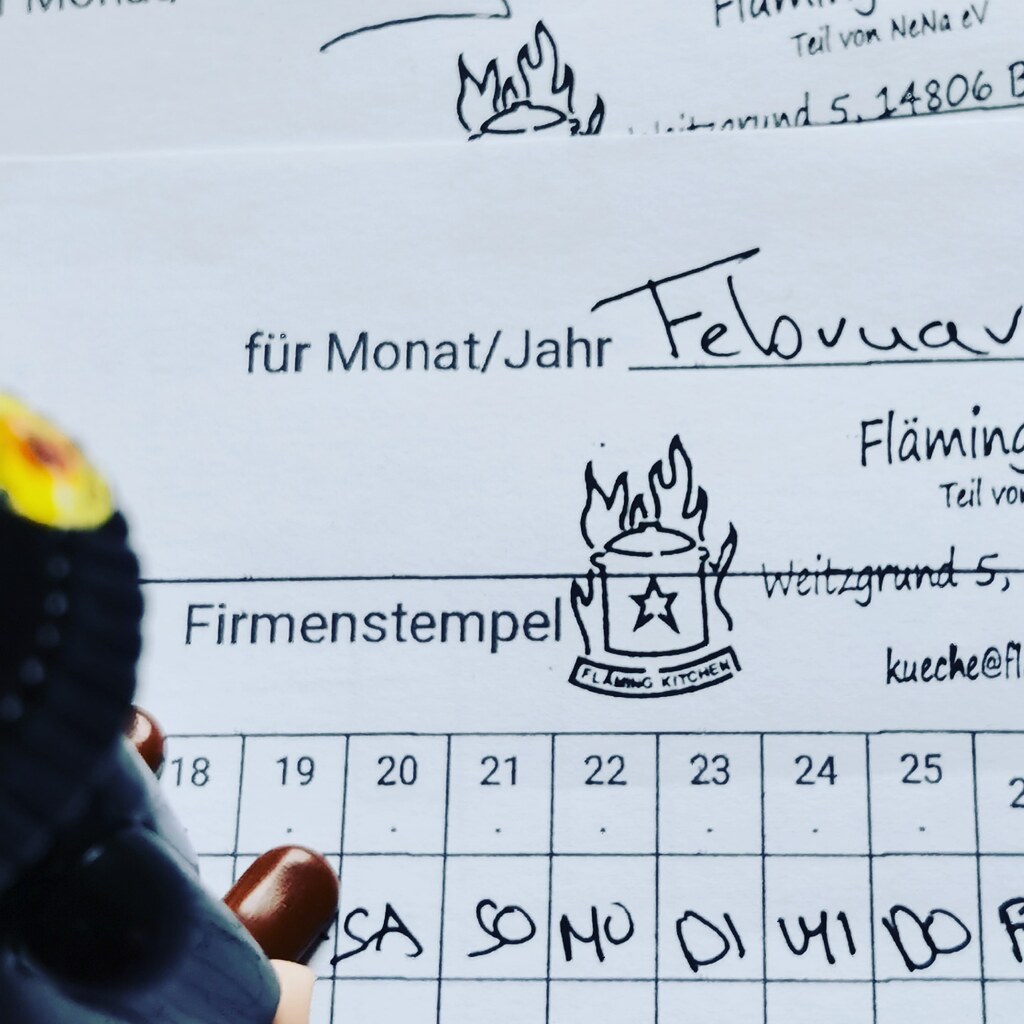 Fläming
Teil von NeNa eV
Weitzgrund 5, 14806 B
für Monat/Jahr Februar
Fläming
Teil von
Weitzgrund 5,
Firmenstempel
FLÄMING KITCHEN
kueche@fl
18 19 20 21 22 23 24 25 2
. . . . . . .
SA SO MO DI MI DO F